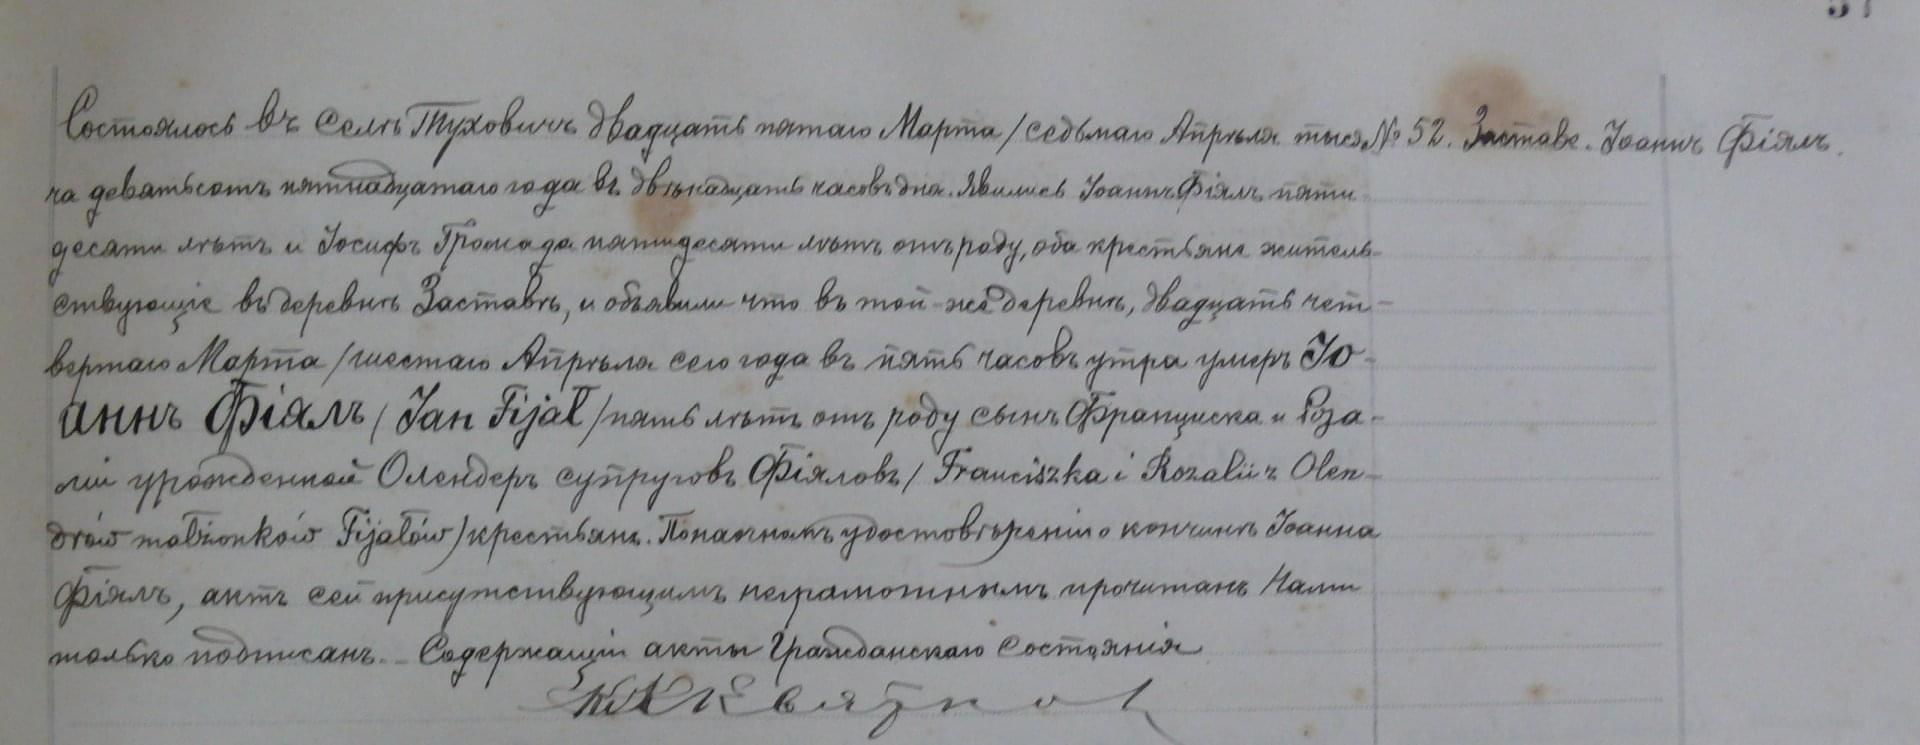 Состоялось въ селѣ Туховичъ двадцать пятаго Марта / седьмаго Апрѣля тыся № 52. Заставе. Іоаннъ Фіялъ.
ча девятьсотъ пятнадцатаго года въ двѣнадцать часовъ дня. Явились Іоаннъ Фіялъ пяти
десяти лѣтъ и Іосифъ Громада пятидесяти лѣтъ отъ роду, оба крестьяне житель-
ствующіе въ деревнѣ Заставѣ, и объявили что въ той-же деревнѣ, двадцать чет-
вертаго Марта / шестаго Апрѣля сего года въ пять часовъ утра умеръ Іо-
аннъ Фіялъ / Jan Fijał / пять лѣтъ отъ роду сынъ Франциска и Роза-
ліи урожденной Олендеръ супруговъ Фіяловъ / Franciszka i Rozalii z Olen-
drów małżonków Fijałów / крестьянъ. По наочномъ удостовѣреніи о кончинѣ Іоанна
Фіялъ, актъ сей присутствующимъ неграмотнымъ прочитанъ Нами
только подписанъ. Содержащій акты Гражданскаго Состоянія